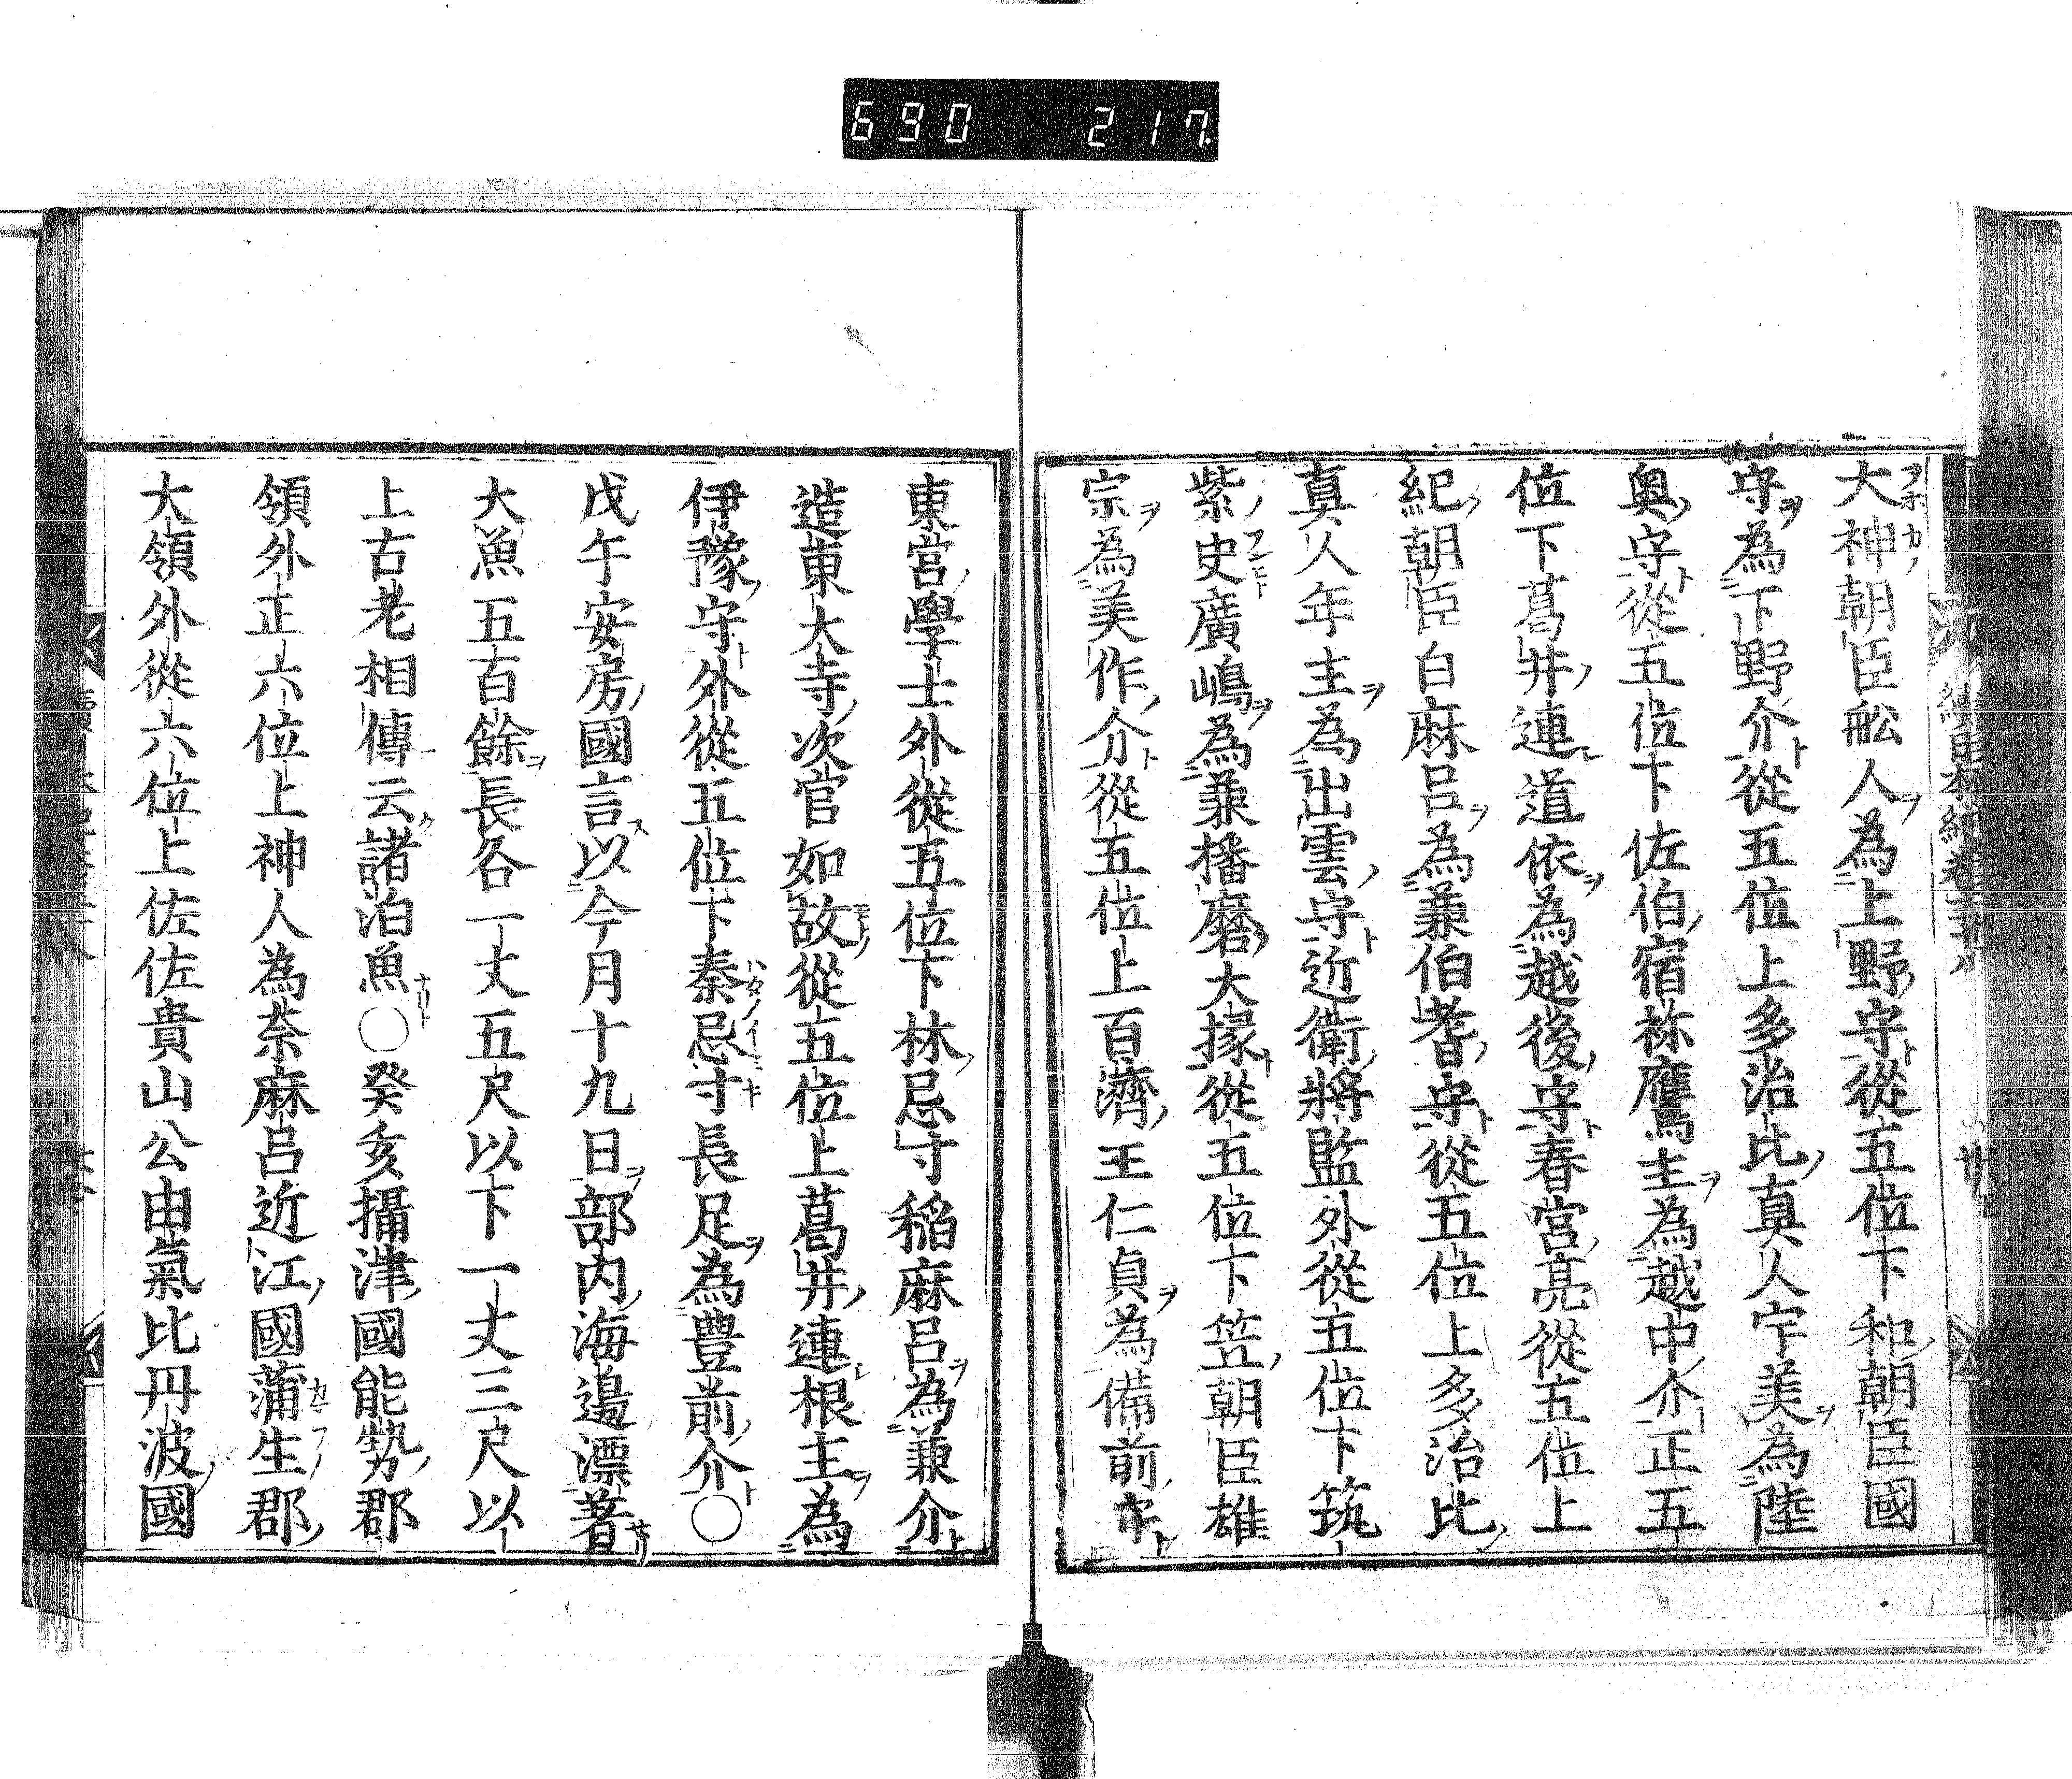 690 217
大神朝臣舩人為上野守從五位下和朝臣國
守為下野介從五位上多治比真人宇美為陸
奥守從五位下佐伯宿祢鷹主為越中介正五
位下葛井連道依為越後守春宮亮從五位上
紀朝臣白麻呂為兼伯耆守從五位上多治比
真人年主為出雲守近衛將監外從五位下筑
紫史廣嶋為兼播磨大掾從五位下笠朝臣雄
宗為美作介從五位上百濟王仁貞為備前守
東宮學士外從五位下林忌寸稲麻呂為兼介
造東大寺次官如故從五位上葛井連根主為
伊豫守外從五位下秦忌寸長足為豊前介〇
戊午安房國言以今月十九日部内海邊漂着
大魚五百餘長各一丈五尺以下一丈三尺以
上古老相傳云諸泊魚〇癸亥攝津國能勢郡
領外正六位上神人為奈麻呂近江國蒲生郡
大領外從六位上佐佐貴山公由氣比丹波國